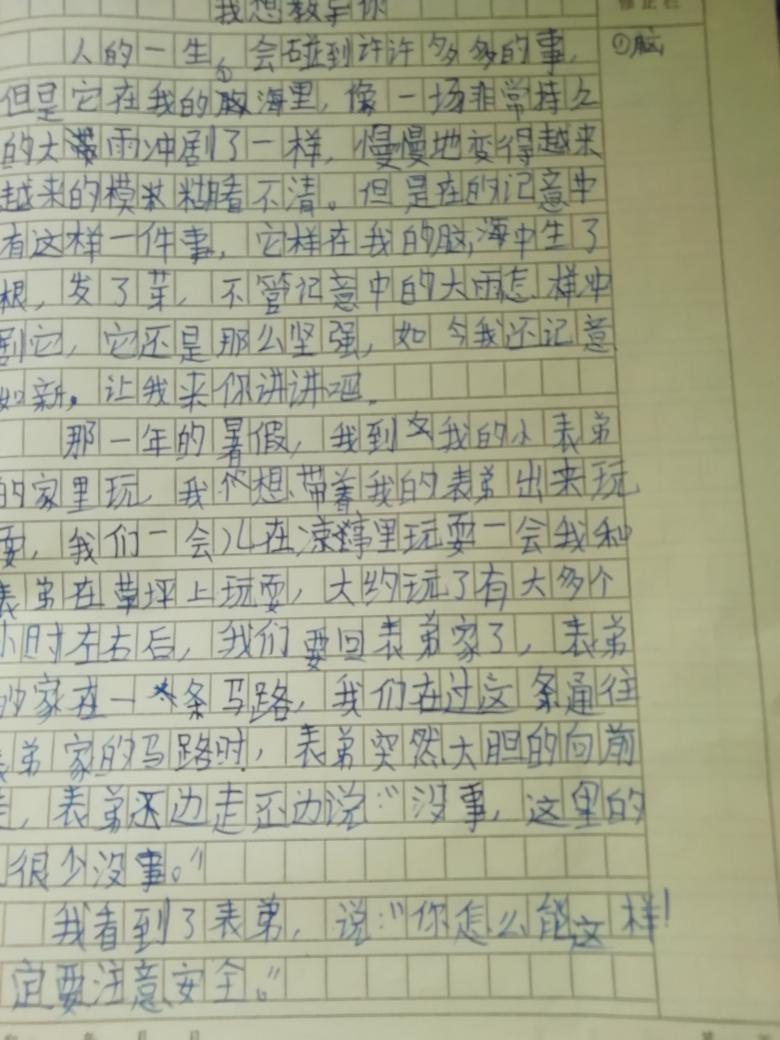 我想教导你
人的一生。会碰到许许多多的事，
①脑
但是它在我的脑海里，像一场非常持久
的大雨冲剧了一样，慢慢地变得越来
越来的模糊看不清。但是在的记意中
有这样一件事，它样在我的脑海中生了
根，发了芽，不管记意中的大雨怎样冲
剧它，它还是那么坚强，如今我还记意
如新，让我来你讲讲吧。
那一年的暑假，我到我的小表弟
的家里玩，我想带着我的表弟出来玩
耍，我们一会儿在凉亭里玩耍一会我和
表弟在草坪上玩耍，大约玩了有大多个
小时左右后，我们要回表弟家了，表弟
的家在一条马路，我们在过这条通往
表弟家的马路时，表弟突然大胆的向前
走，表弟还边走还边说：“没事，这里的
很少没事。”
我看到了表弟，说：“你怎么能这样！
定要注意安全。”